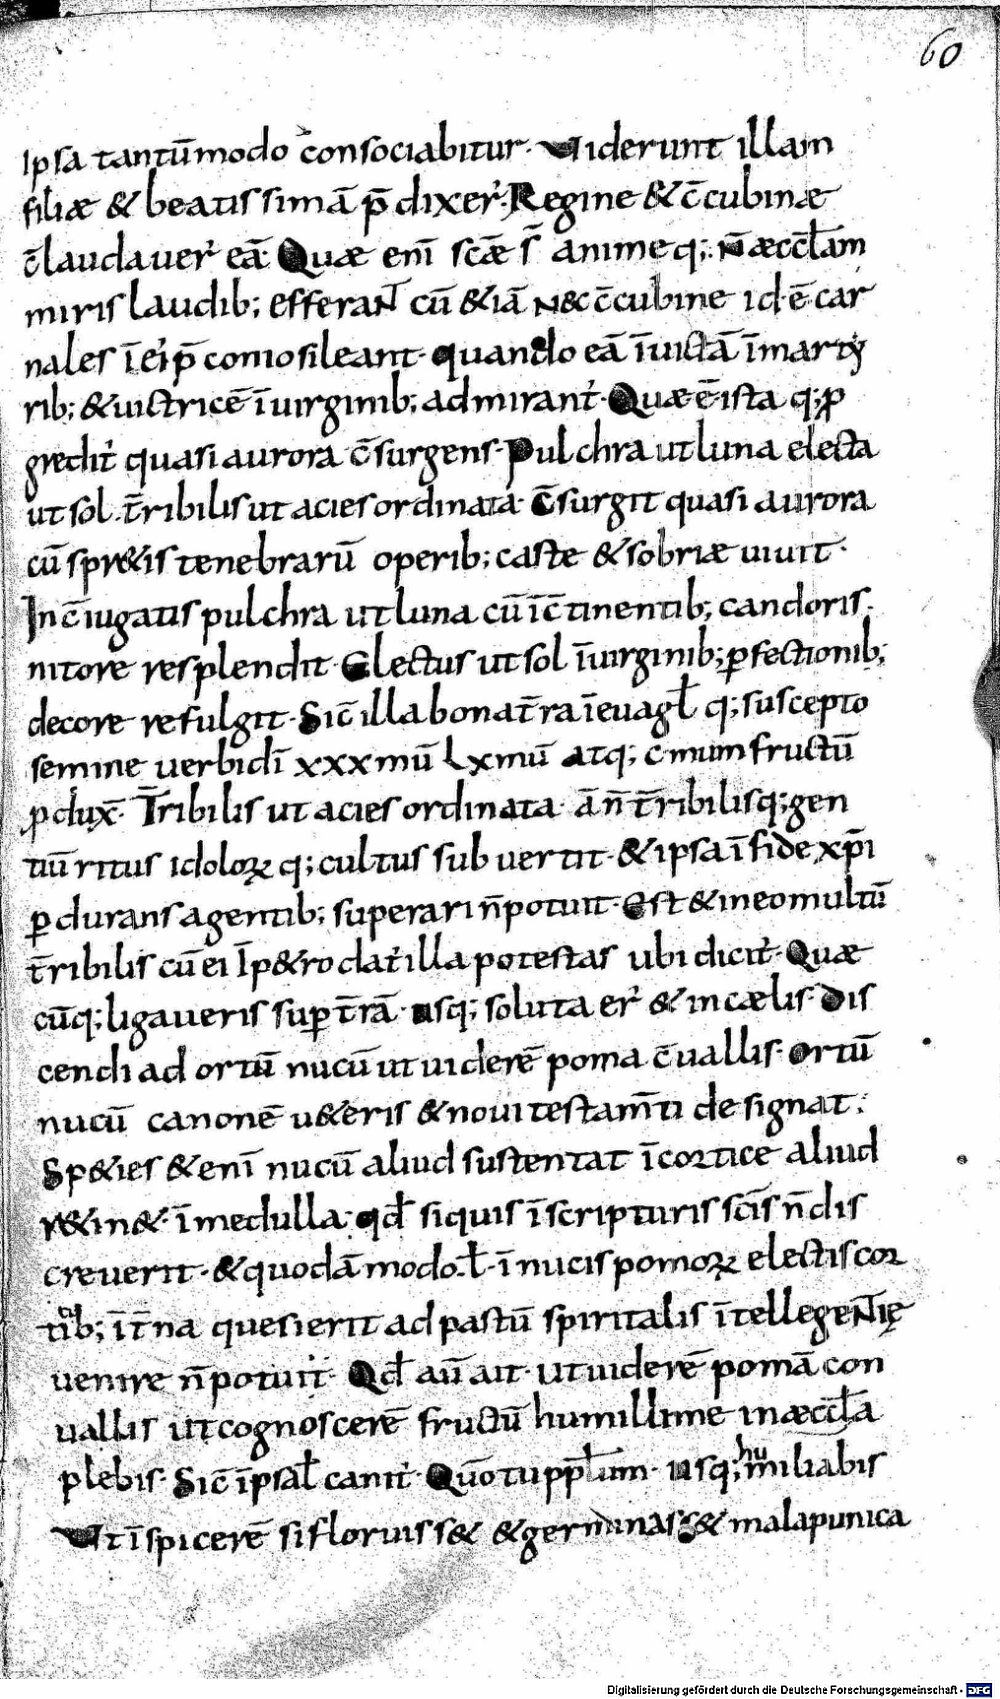 60
Ipsa tantū modo consociabitur. Uiderunt illam
filiæ & beatissimā p̄dixer̄. Regine & c̄cubinæ
c̄laudauer̄ eā. Quæ enī scǣ s̄t animeq; N̄ æccl̄am
miris laudib; efferaNT̄ cū &iā N&c̄cubine id.ē car
nales ī ei p̄conio sileant. quando eā īuictā ī marty
rib; & uictricē ī uirginib; admirant̄. Quæ ē ista q; ꝓ
gredit̄ quasi aurora c̄surgens. Pulchra ut luna electa
ut sol. t̄ribilis ut acies ordinata. C̄surgit quasi aurora
cū spr&is tenebrarū operib; caste & sobriæ uiuit.
In c̄iugatis pulchra ut luna cū īc̄tinentib; candoris.
nitore resplendit. Electus ut sol ī uirginib; ꝑfectionib;
decore refulgit. Sic̄ illa bona t̄ra ī euagl̄ q; suscepto
semine uerbi dī xxxmū Lxmū atq; c.mum fructū
ꝓdux̄. T̄ribilis ut acies ordinata. ān̄ t̄ribilis q; gen
tiū ritus idoloꝝ q; cultus sub uertit. & ipsa ī fide xp̄i
ꝑdurans a gentib; superari n̄ potuit. Est & in eo multū
t̄ribilis cū ei Ip̄ & ro dat̄ illa potestas ubi dicit̄. Quæ
cūq; ligaueris suꝑ t̄rā. usq; soluta er̄ & in cælis. Dis
cendi ad ortū nucū ut uiderē poma c̄uallis. Ortū
nucū canonē u&eris & noui testam̄ti designat.
Sp&ies &enī nucū aliud sustentat ī cortice aliud
r&in& ī medulla. qd̄ siquis ī scripturis scīs n̄ dis
creuerit. & quodā modo.l̄. ī nucis pomoꝝ electis cor
tib; īt̄na quesierit ad pastū spiritalis ītellegeNTię
uenire n̄ potuit. Qd̄ aū ait. ut uiderē pomā con
uallis ut cognoscerē fructū humillime in æccl̄a
plebis. Sic̄ ī psal̄ canit̄. Quō tu pp̄l̄um. usq; humiliabis
Ut īspicerē si floruiss& & germinass& mala punica
Digitalisierung gefördert durch die Deutsche Forschungsgemeinschaft - DFG